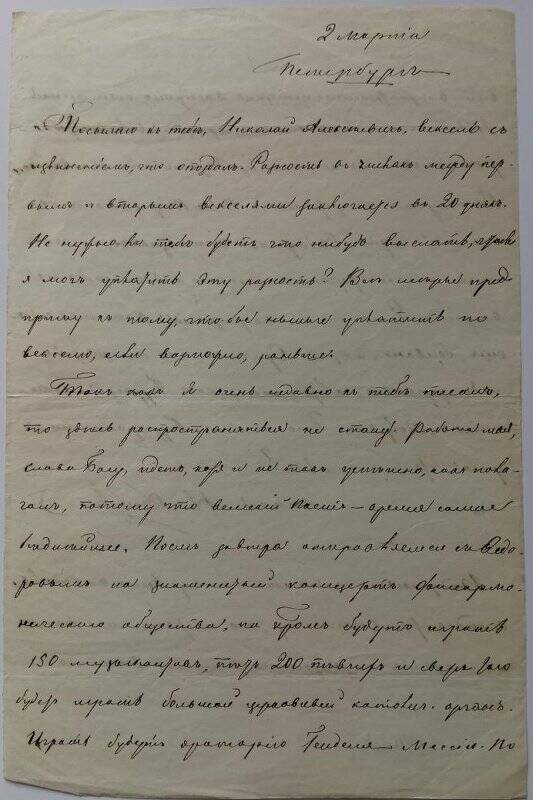 2 Марта
Петербургъ
Посылаю къ тебѣ, Николай Алексѣевичъ, вексель съ
извиненіемъ, что опоздалъ. Разность въ числахъ между пер-
вымъ и вторымъ векселями заключается въ 20 дняхъ.
Не нужно ли тебѣ будетъ что нибудь выслать, чтобъ
я могъ уплатить эту разность? Всѣ мѣры пред
приму къ тому, чтобы нынче уплатить по
векселю, если возможно, раньше.
Такъ какъ я очень недавно къ тебѣ писалъ,
то здѣсь распространяться не стану. Работа моя,
слава Богу, идетъ, хотя и не такъ успѣшно, какъ пола-
галъ, потому что великій постъ – время самое
Послѣ завтра отправляемся съ Ѳедо-
ровымъ на знаменитый концертъ филармо-
ническаго общества, на будутъ играть
150 музыкантовъ, пѣть 200 пѣвчихъ и сверхъ того
будетъ играть большой органъ.
Играть будутъ ораторію Генделя – Мессія. По